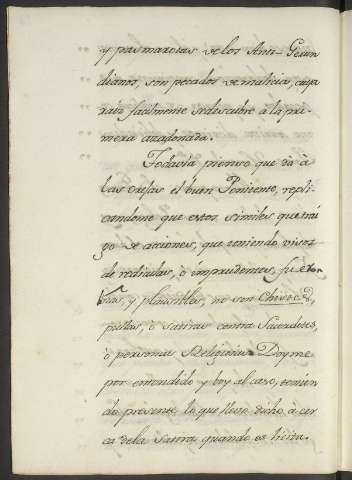 y pasmarotas de los Anti-Gerun
dianos, son pecados de malicia, cuya
raiz facilmente se descubre à la pri-
mera azadonada.
Todavia pienso que da à
las el buen Peniente, repli
candome que estos similes que trai
go de acciones, que teniendo visos
de rediculas, ò imprudentes, fu
y plausibles, no son Chistes,
pullas, ò satiras contra Sacerdotes,
ò personas Religiosas. Doyme
por entendido y boy al caso, tenien
do presente lo que llevo dicho à cer
ca de la Satira, quando es licita.